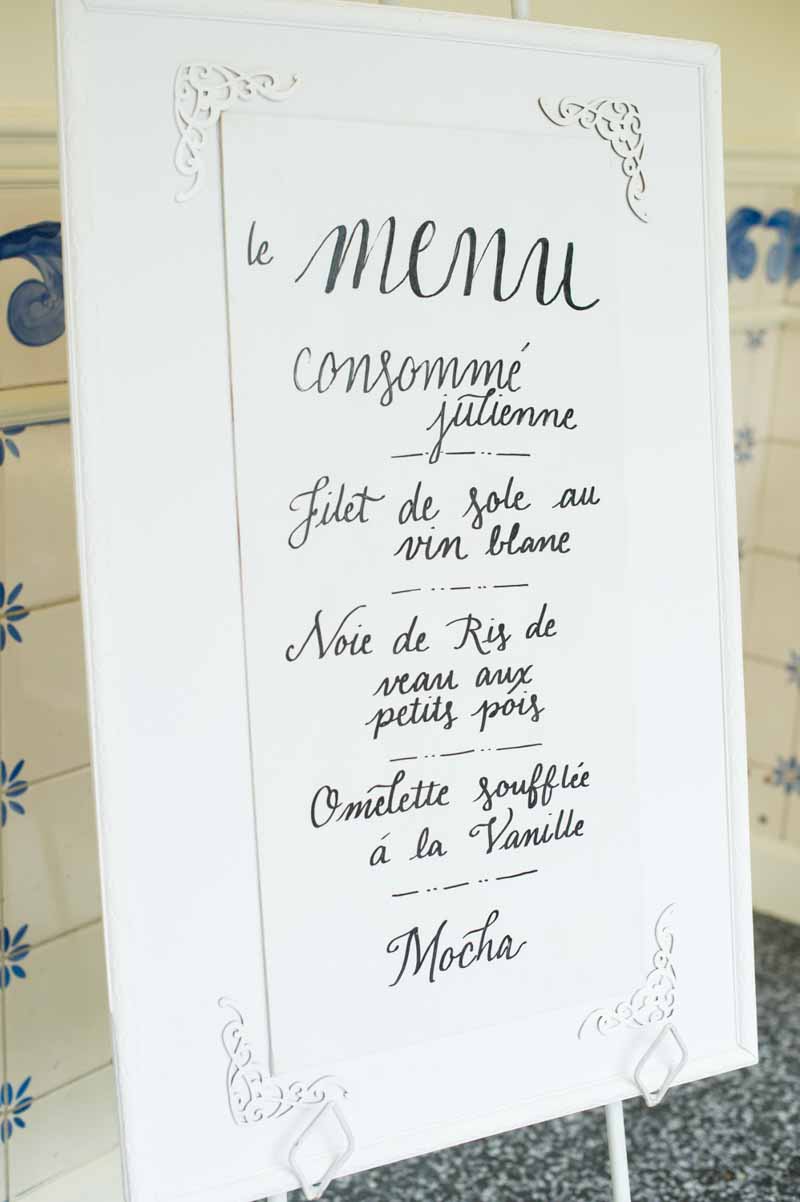 le menu
consommé
julienne
Filet de sole au
vin blanc
Noie de Ris de
veau aux
petits pois
Omelette soufflée
á la Vanille
Mocha